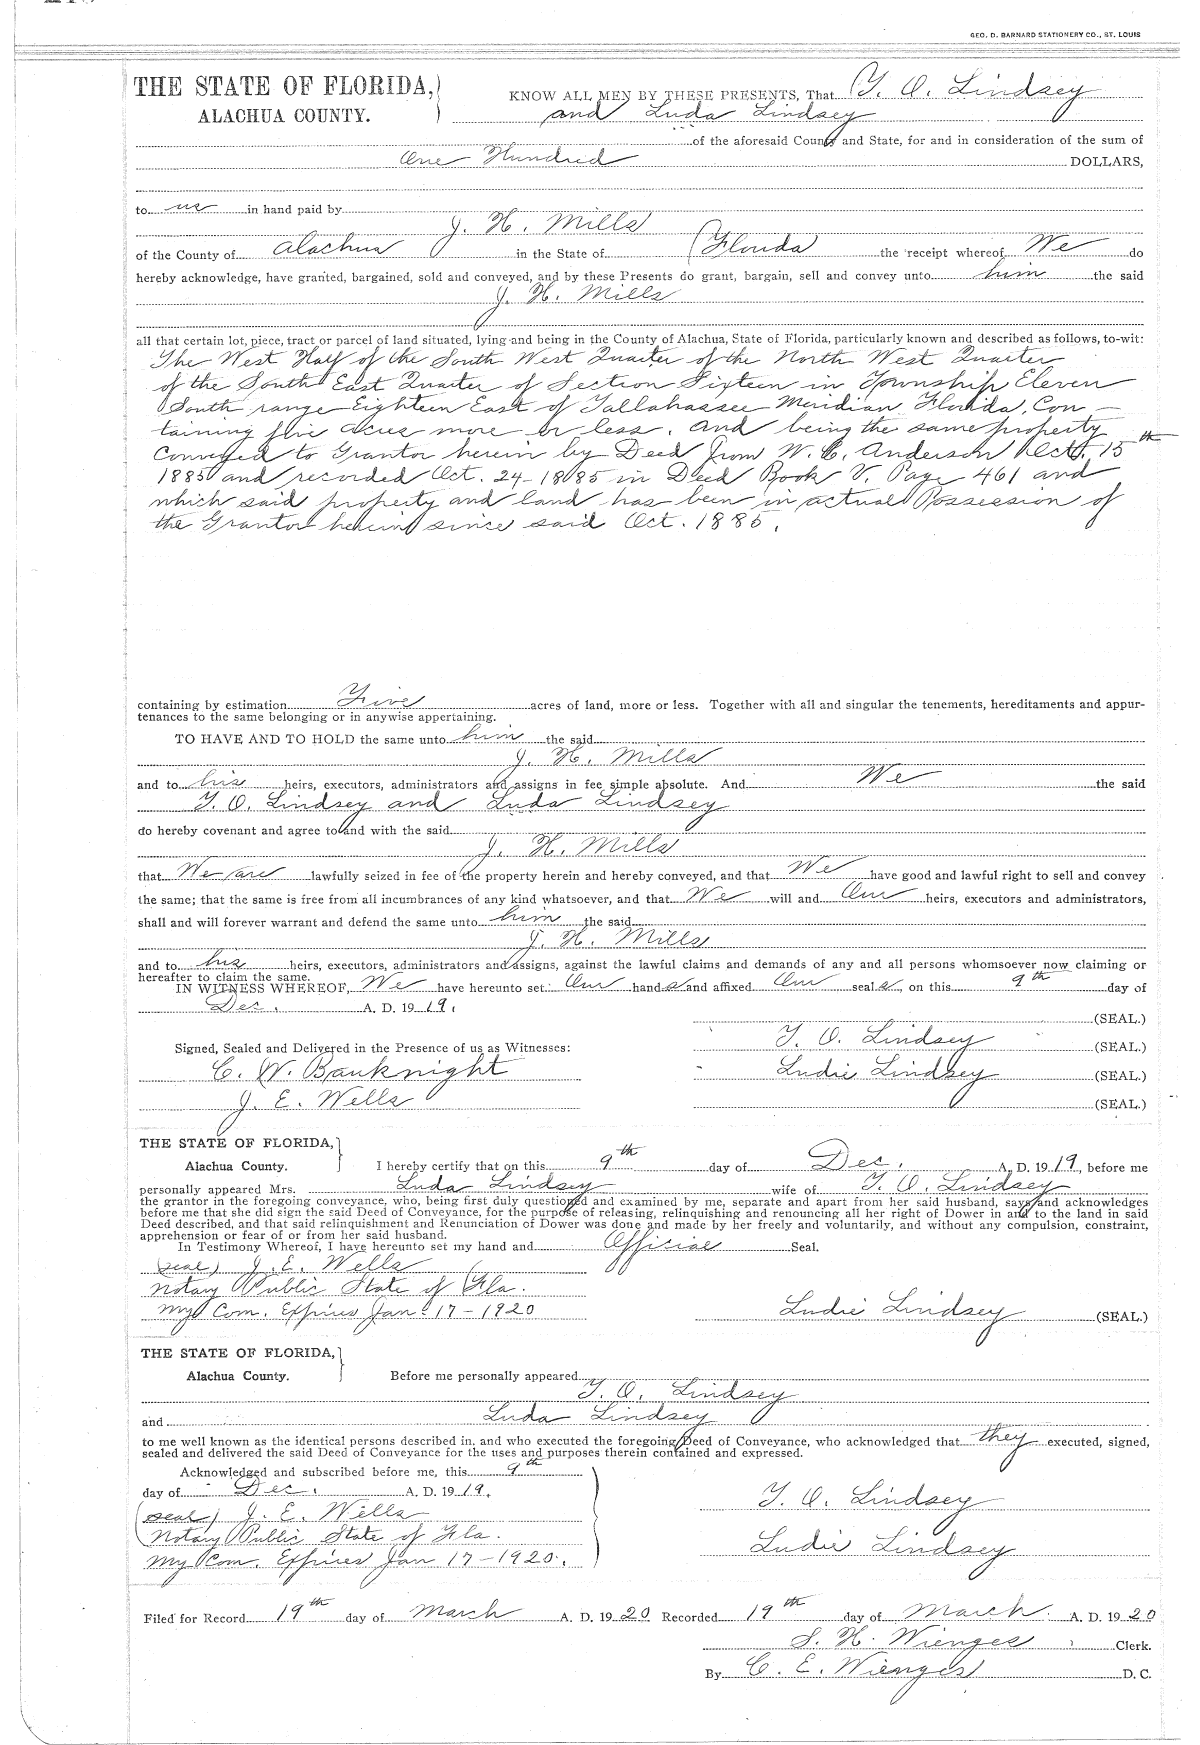 GEO. D. BARNARD STATIONERY CO., ST. LOUIS
THE STATE OF FLORIDA,
ALACHUA COUNTY.
KNOW ALL MEN BY THESE PRESENTS, That Y. O. Lindsey
and Luda Lindsey
of the aforesaid County and State, for and in consideration of the sum of
One Hundred DOLLARS,
to us in hand paid by
J. H. Mills
of the County of Alachua in the State of Florida the receipt whereof We do
hereby acknowledge, have granted, bargained, sold and conveyed, and by these Presents do grant, bargain, sell and convey unto him the said
J. H. Mills
all that certain lot, piece, tract or parcel of land situated, lying and being in the County of Alachua, State of Florida, particularly known and described as follows, to-wit:
The West Half of the South West Quarter of the North West Quarter
of the South East Quarter of Section Sixteen in Township Eleven
South range Eighteen East of Tallahassee Meridian Florida, Con-
taining five acres more or less. And being the same property
Conveyed to Grantor herein by Deed from W. C. Anderson Oct. 15th
1885 and recorded Oct. 24-1885 in Deed Book V. Page 461 and
which said property and land has been in actual Possession of
the Grantor herein since said Oct. 1885.
containing by estimation Five acres of land, more or less. Together with all and singular the tenements, hereditaments and appur-
tenances to the same belonging or in anywise appertaining.
TO HAVE AND TO HOLD the same unto him the said
J. H. Mills
and to his heirs, executors, administrators and assigns in fee simple absolute. And We the said
Y. O. Lindsey and Luda Lindsey
do hereby covenant and agree to and with the said
J. H. Mills
that We are lawfully seized in fee of the property herein and hereby conveyed, and that We have good and lawful right to sell and convey
the same; that the same is free from all incumbrances of any kind whatsoever, and that We will and Our heirs, executors and administrators,
shall and will forever warrant and defend the same unto him the said
J. H. Mills
and to his heirs, executors, administrators and assigns, against the lawful claims and demands of any and all persons whomsoever now claiming or
hereafter to claim the same.
IN WITNESS WHEREOF, We have hereunto set Our hands and affixed Our seals, on this 9th day of
Dec. A. D. 1919.
(SEAL.)
Y. O. Lindsey (SEAL.)
Signed, Sealed and Delivered in the Presence of us as Witnesses:
C. W. Banknight Ludie Lindsey (SEAL.)
J. E. Wells (SEAL.)
THE STATE OF FLORIDA,
Alachua County. I hereby certify that on this 9th day of Dec. A. D. 1919, before me
personally appeared Mrs. Luda Lindsey wife of Y. O. Lindsey
the grantor in the foregoing conveyance, who, being first duly questioned and examined by me, separate and apart from her said husband, says and acknowledges
before me that she did sign the said Deed of Conveyance, for the purpose of releasing, relinquishing and renouncing all her right of Dower in and to the land in said
Deed described, and that said relinquishment and Renunciation of Dower was done and made by her freely and voluntarily, and without any compulsion, constraint,
apprehension or fear of or from her said husband.
In Testimony Whereof, I have hereunto set my hand and Official Seal.
(seal) J. E. Wells
Notary Public State of Fla.
My Com. Expires Jan. 17-1920 Ludie Lindsey (SEAL.)
THE STATE OF FLORIDA,
Alachua County. Before me personally appeared
Y. O. Lindsey
and Luda Lindsey
to me well known as the identical persons described in, and who executed the foregoing Deed of Conveyance, who acknowledged that they executed, signed,
sealed and delivered the said Deed of Conveyance for the uses and purposes therein contained and expressed.
Acknowledged and subscribed before me, this 9th
day of Dec. A. D. 1919.
(seal) J. E. Wells
Notary Public State of Fla.
My Com. Expires Jan 17-1920.
Y. O. Lindsey
Ludie Lindsey
Filed for Record 19th day of March A. D. 1920 Recorded 19th day of March A. D. 1920
S. H. Wienges Clerk.
By C. E. Wienges D. C.